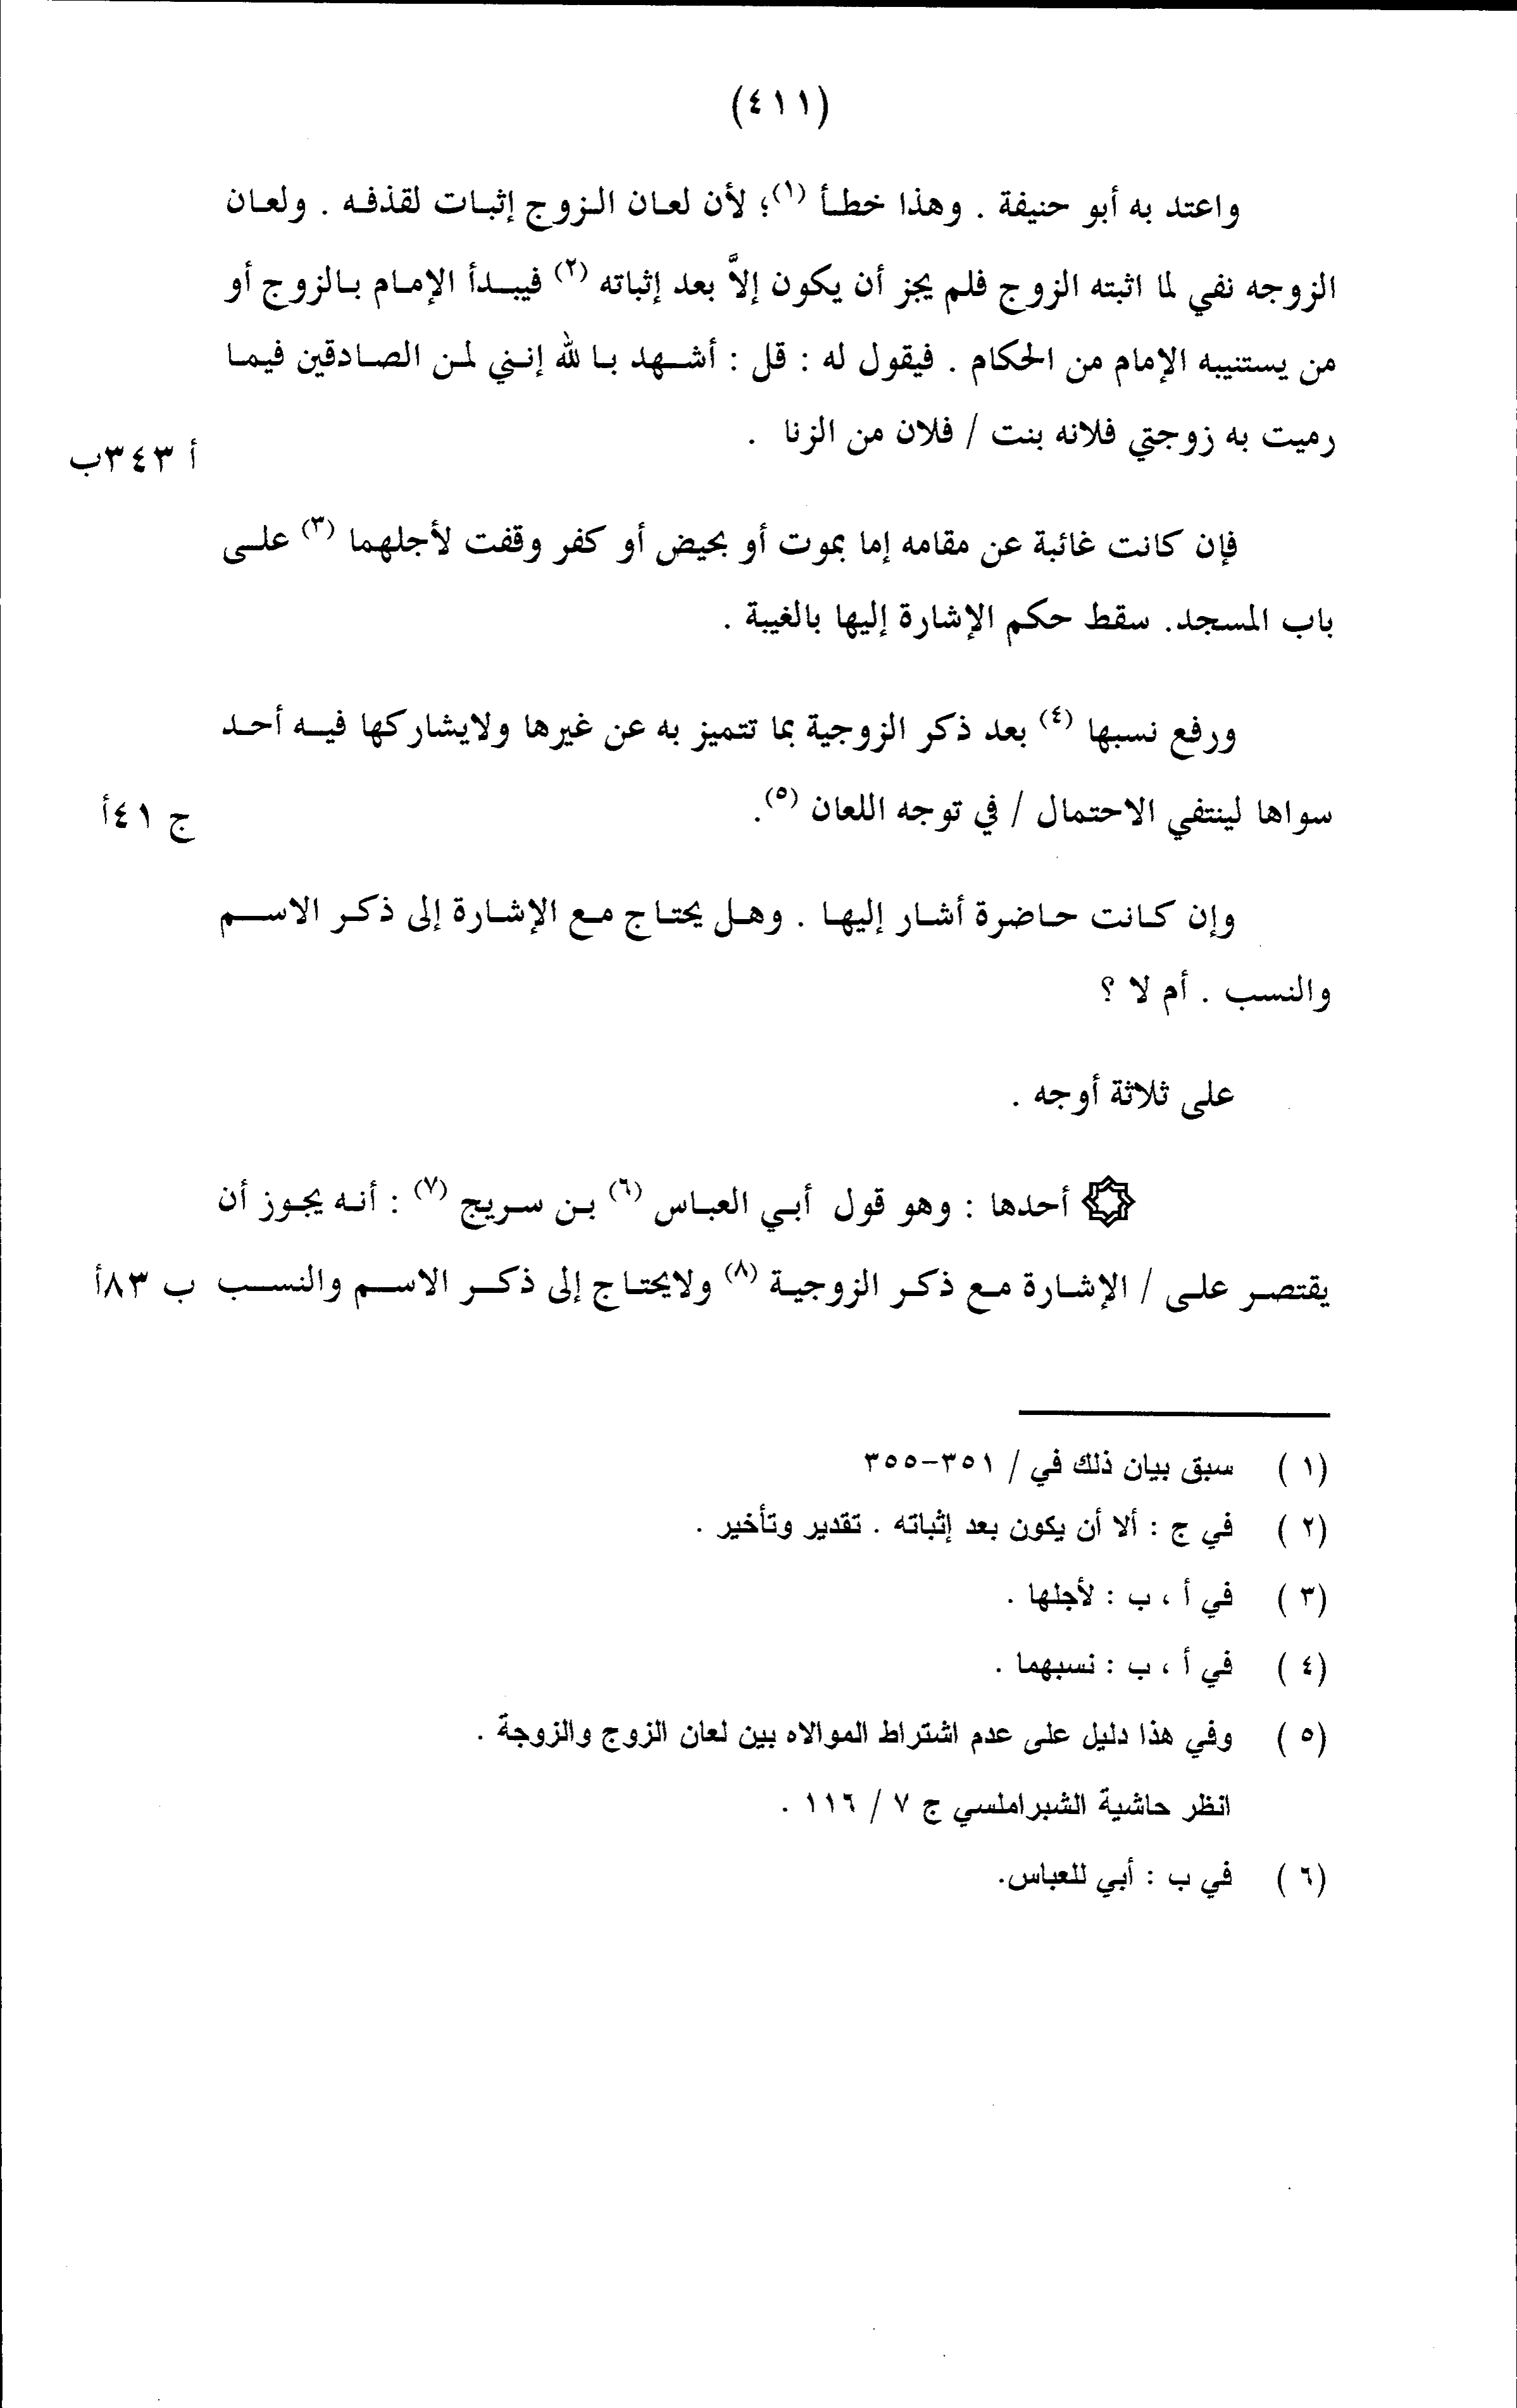 (٤١١)
واعتد به أبو حنيفة . وهذا خطأ (١)؛ لأن لعان الزوج إثبات لقذفه . ولعان
الزوجه نفي لما اثبته الزوج فلم يجز أن يكون إلاَّ بعد إثباته (٢) فيبدأ الإمام بالزوج أو
من يستنيبه الإمام من الحكام . فيقول له : قل : أشهد با لله إنني لمن الصادقين فيما
رميت به زوجتي فلانه بنت / فلان من الزنا .
أ ٣٤٣ب
فإن كانت غائبة عن مقامه إما بموت أو بحيض أو كفر وقفت لأجلهما (٣) على
باب المسجد. سقط حكم الإشارة إليها بالغيبة .
ورفع نسبها (٤) بعد ذكر الزوجية بما تتميز به عن غيرها ولايشاركها فيه أحد
سواها لينتفي الاحتمال / في توجه اللعان (٥).
ج ٤١أ
وإن كانت حاضرة أشار إليها . وهل يحتاج مع الإشارة إلى ذكر الاسم
والنسب . أم لا ؟
على ثلاثة أوجه .
أحدها : وهو قول أبي العباس (٦) بن سريج (٧) : أنه يجوز أن
يقتصر على / الإشارة مع ذكر الزوجية (٨) ولايحتاج إلى ذكر الاسم والنسب ب ٨٣أ
(١) سبق بيان ذلك في / ٣٥١-٣٥٥
(٢) في ج : ألا أن يكون بعد إثباته . تقدير وتأخير .
(٣) في أ ، ب : لأجلها .
(٤) في أ ، ب : نسبهما .
(٥) وفي هذا دليل على عدم اشتراط الموالاه بين لعان الزوج والزوجة .
انظر حاشية الشبراملسي ج ٧ / ١١٦ .
(٦) في ب : أبي للعباس.